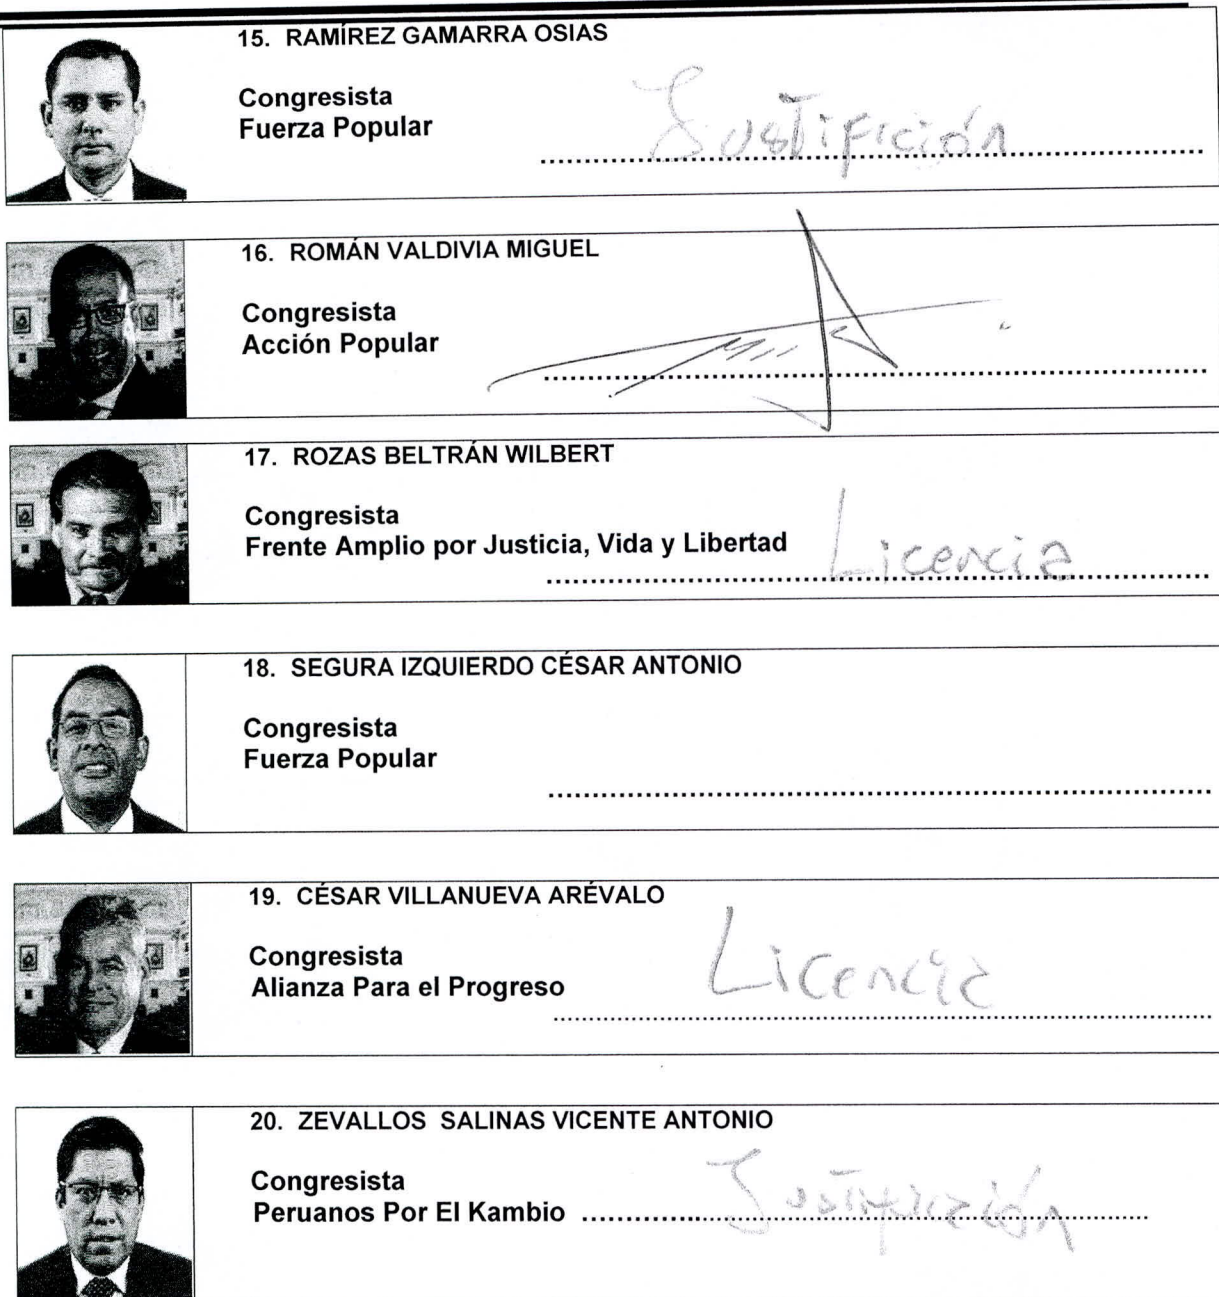 15. RAMÍREZ GAMARRA OSIAS
Congresista
Fuerza Popular
Justifición
16. ROMÁN VALDIVIA MIGUEL
Congresista
Acción Popular
17. ROZAS BELTRÁN WILBERT
Congresista
Frente Amplio por Justicia, Vida y Libertad
Licencia
18. SEGURA IZQUIERDO CÉSAR ANTONIO
Congresista
Fuerza Popular
19. CÉSAR VILLANUEVA ARÉVALO
Congresista
Alianza Para el Progreso
Licencia
20. ZEVALLOS SALINAS VICENTE ANTONIO
Congresista
Peruanos Por El Kambio